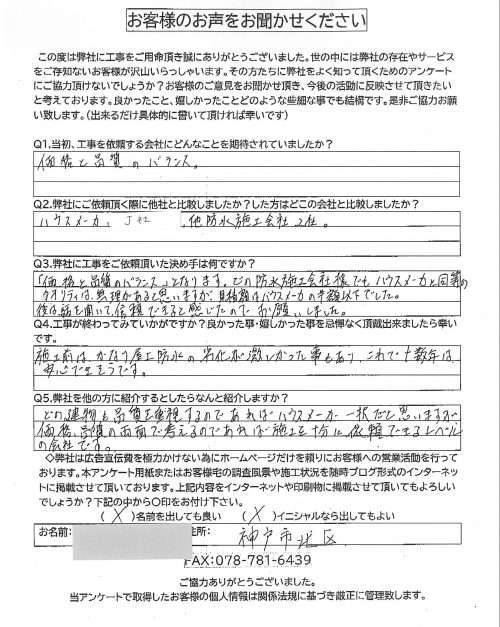 お客様のお声をお聞かせください
この度は弊社に工事をご用命頂き誠にありがとうございました。世の中には弊社の存在やサービス
をご存知ないお客様が沢山いらっしゃいます。その方たちに弊社をよく知って頂くためのアンケート
にご協力頂けないでしょうか?お客様のご意見をお聞かせ頂き、今後の活動に反映させて頂きたい
と考えております。良かったこと、嬉しかったことどのような些細な事でも結構です。是非ご協力お願
い致します。(出来るだけ具体的に書いて頂ければ幸いです)
Q1.当初、工事を依頼する会社にどんなことを期待されていましたか?
価格と品質のバランス。
Q2.弊社にご依頼頂く際に他社と比較しましたか?した方はどこの会社と比較しましたか?
ハウスメーカー J社 、他防水施工会社2社。
Q3.弊社に工事をご依頼頂いた決め手は何ですか?
「価格と品質のバランス」となります。どの防水施工会社様でもハウスメーカーと同等の
クオリティは、無理があると思いますが、見積額はハウスメーカーの半額以下でした。
後は、話を聞いて、信頼できると感じたのでお願いしました。
Q4.工事が終わってみていかがですか?良かった事・嬉しかった事を忌憚なく頂戴出来ましたら幸い
です。
施工前は、かなり屋上防水の劣化が激しかった事もあり、これで十数年は
安心できそうです。
Q5.弊社を他の方に紹介するとしたらなんと紹介しますか?
どの建物も品質を重視するのであればハウスメーカー一択だと思いますが
価格、品質の両面で考えるのであれば施工を十分に依頼できるレベル
の会社です。
◇弊社は広告宣伝費を極力かけない為にホームページだけを頼りにお客様への営業活動を行って
おります。本アンケート用紙またはお客様宅の調査風景や施工状況を随時ブログ形式のインターネッ
トに掲載させて頂いております。上記内容をインターネットや印刷物に掲載させて頂いてもよろしい
でしょうか?下記の中から〇印をお付け下さい。
(X)名前を出しても良い (X)イニシャルなら出してもよい
お名前: 住所: 神戸市北区
FAX:078-781-6439
ご協力ありがとうございました。
当アンケートで取得したお客様の個人情報は関係法規に基づき厳正に管理致します。